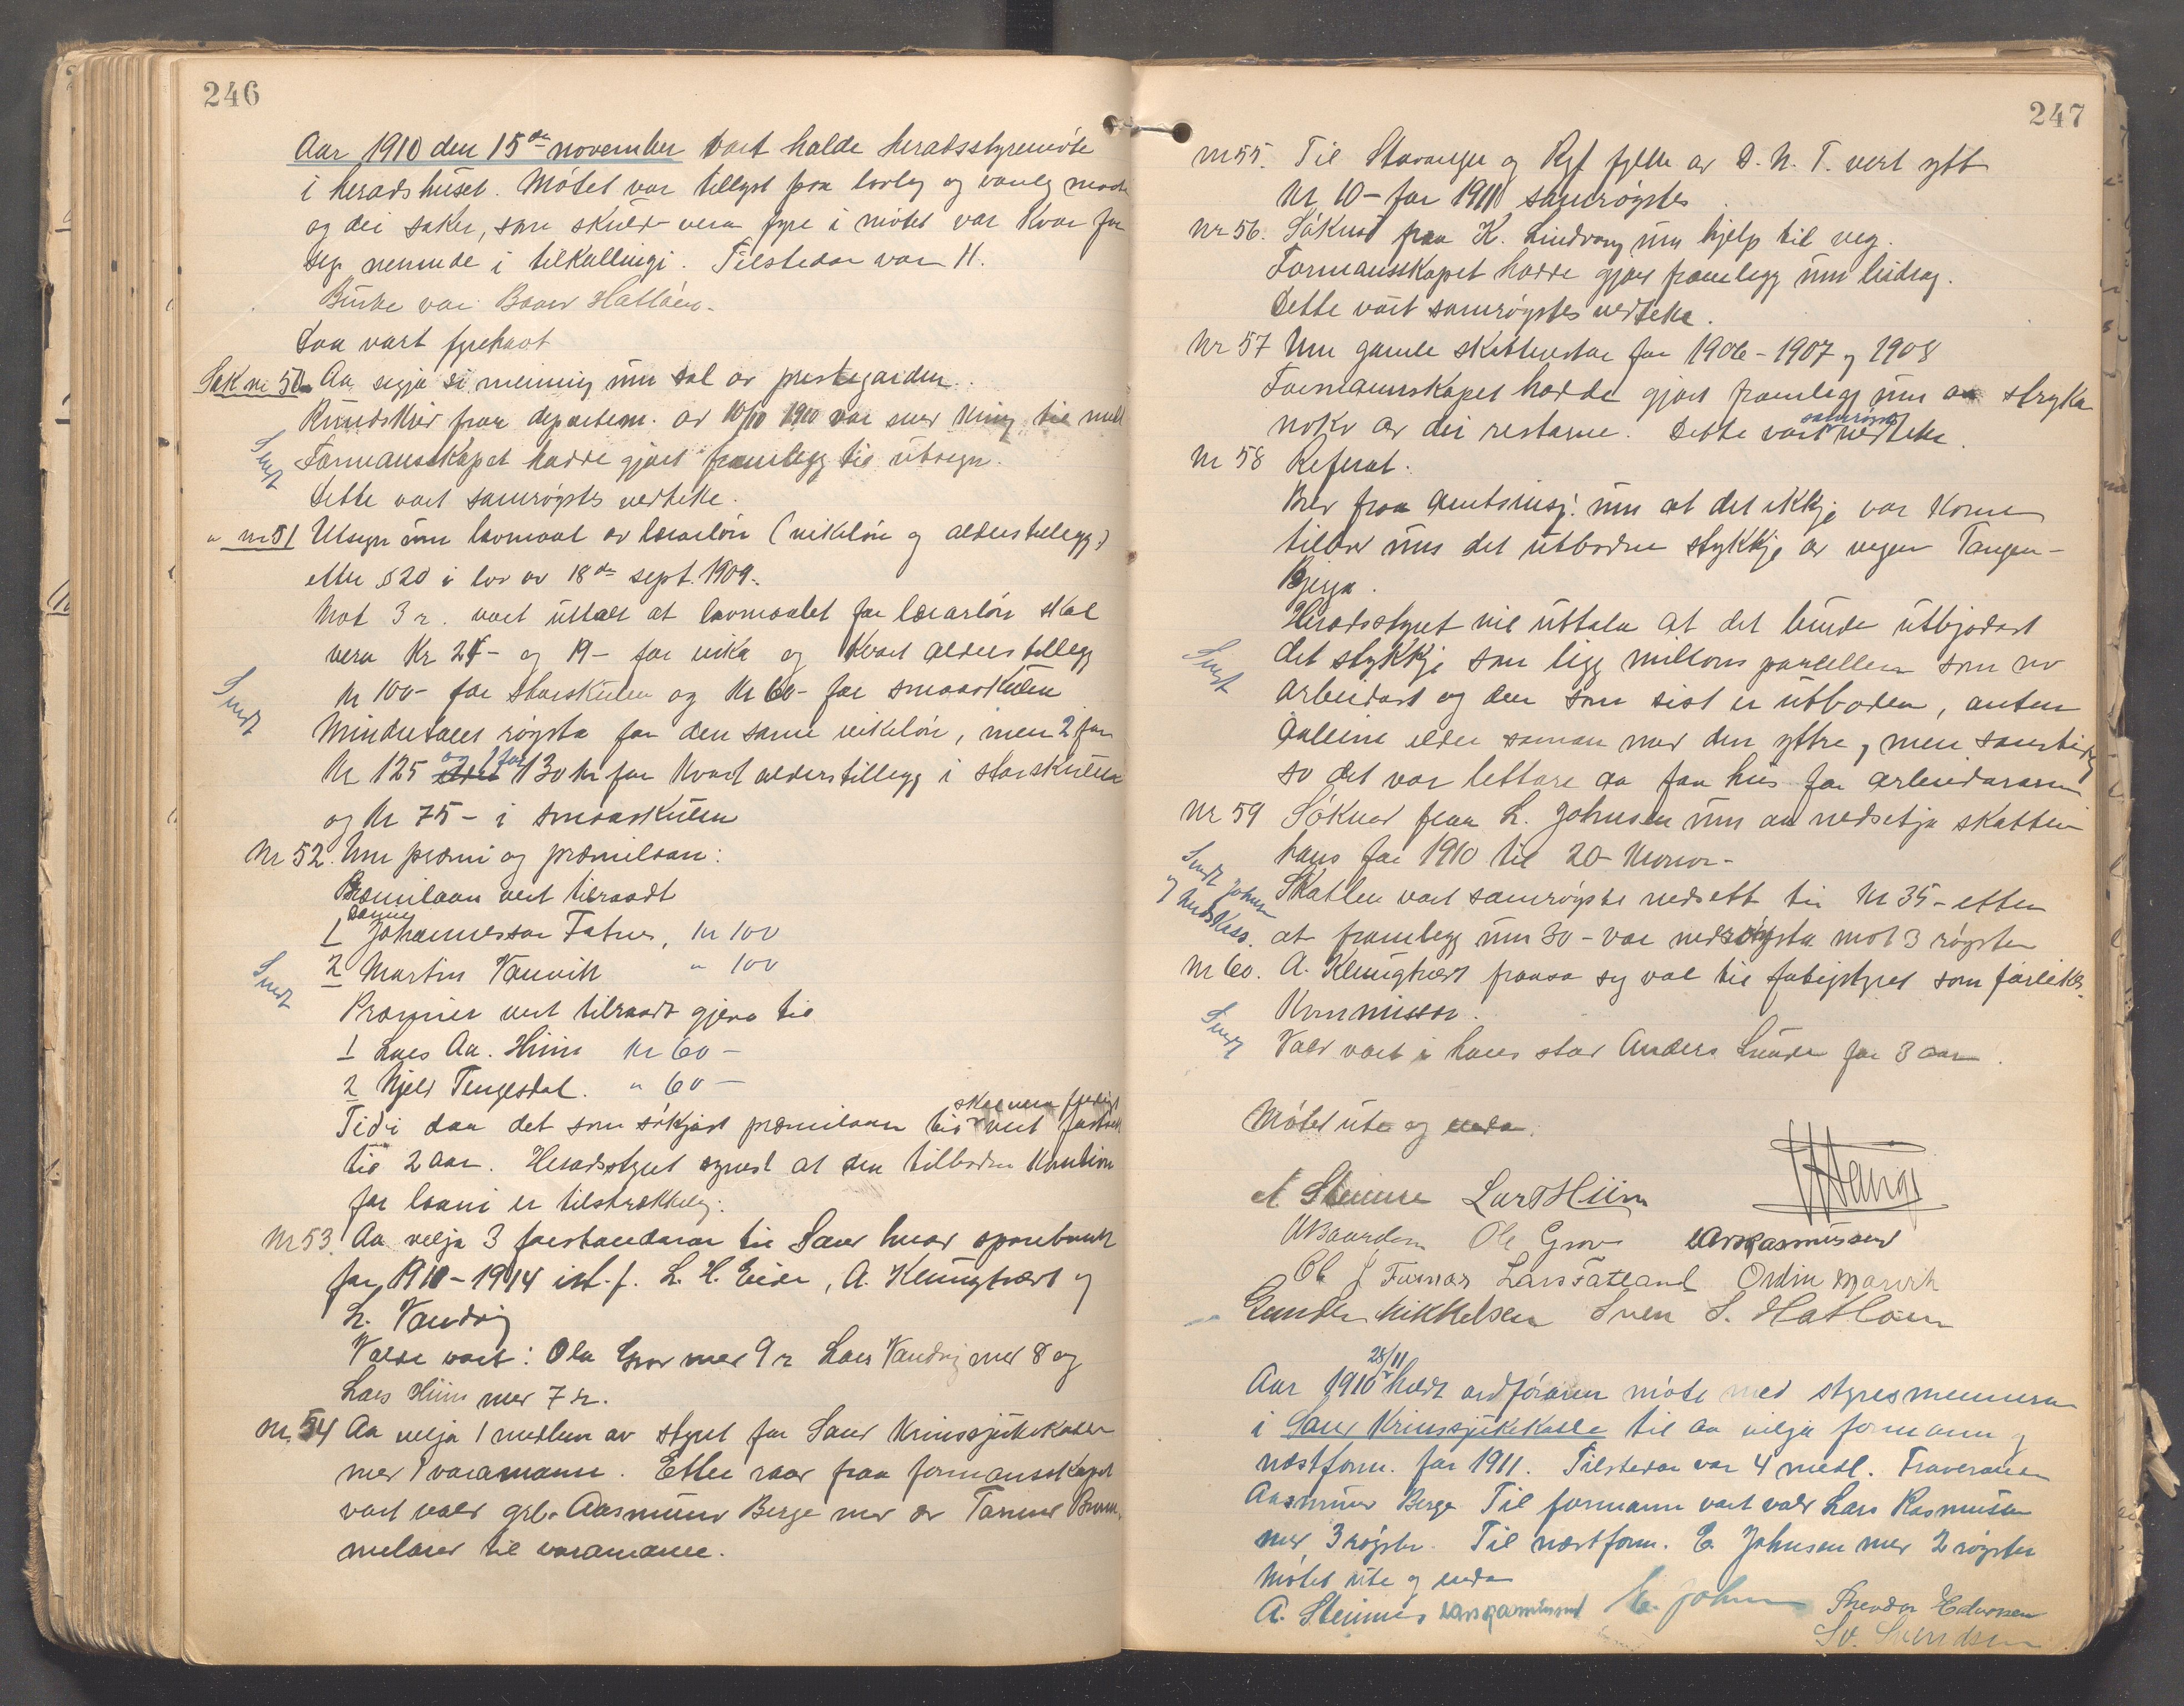 246
Aar 1910 den 15de november vart halde heradsstyremöte
i heradshuset. Mötet var tillyst paa lovleg og vanleg maate
og dei saker, som skulde vera fyre i mötet var kvar for
seg nemnde i tilkallingi. Tilstedar var 11.
Burte var Baard Hatlöen.
Daa vart fyrehavt
Sak nr 50 Aa segja si meining um sal av prestegarden.
Rundskriv fraa departem. av 10/10 1910 var med
Formannskapet hadde gjort framlegg til utsegn.
Sendt
Dette vart samröystes vedteke.
" nr 51 Utsegn um lavmaal av lærarlön (vikelön og alderstillegg)
etter § 20 i lov av 18de sept. 1909.
Mot 3 r. vart uttalt at lavmaalet for lærarlön skal
vera Kr 24- og 19- for vika og kvart alderstillegg
Kr 100- for storskulen og Kr 60- for smaaskulen
Sendt
Mindretalet röysta for den same vikelön, men 2 for
Kr 125 og 1 for 130 kr for kvart alderstillegg i storskulen
og Kr 75- i smaaskulen
Nr 52. Um præmi og præmilaan:
Præmilaan vert tilraadt
1 Johannessar Fatnes, Kr 100
2 Martin Vanvik " 100
Sendt
Præmier vert tilraadt gjeva til
1 Lars Aa. Hiim Kr 60-
2 Kjeld Tengesdal. " 60-
skal vera ferdigt
Tidi daa det som sökjast præmilaan til vert fastsett
til 2 aar. Heradsstyret synest at den tilbodne kaution
for laani er tilstrækkeleg.
Nr 53. Aa velja 3 forstandarar til Saud herad sparebank
for 1910-1914 ist. f. L. H. Eide, A. Klungtvedt og
L. Vandvig
Valde vart: Ola Grov med 9 r Lars Vandvig med 8 og
Lars Hiim med 7 r.
Nr. 54 Aa velja 1 medlem av styret for Saud Krinssjukekasse
med 1 varamann. Etter raad fraa formannskapet
vart vald grb. Aasmund Berge med
til varamann.
247
nr 55. Til Stavanger og Ryf fylke av D. N. T. vert ytt
Kr 10- for 1911 samröystes
nr 56. Söknad fraa K. Lindvang um hjelp til veg.
Formannskapet hadde gjort framlegg um bidrag.
Dette vart samröystes vedteke.
Nr 57 Um gamle skatterestar for 1906-1907 og 1908
Formannskapet hadde gjort framlegg um aa stryka
noko av dei restarne. Dette vart samröystes vedteke.
Nr 58 Referat.
Brev fraa amtsinsj. um at det ikkje var kome
tilbod um det utbodne stykkje av vegen Tangen-
Bjerga.
Heradsstyret vil uttala at det burde utbjodast
Sendt
det stykkje som ligg millom parcellen som no
arbeidast og den som sist er utboden, anten
aaleine eller saman med den yttre, men samtidig
so det var lettare aa faa hus for arbeidararne
Nr 59 Söknad fraa L. Johnsen um aa nedsetja skatten
hans for 1910 til 20- Kronor-
Sendt Johnsen
og Kass.
Skatten vart samröystes nedsett til Kr 35- etter
at framlegg um 30- var nedröysta mot 3 röyster
Nr 60. A. Klungtvedt fraasa seg val til som forliks-
Kommissær.
Sendt
Vald vart i hans stad Anders Lunde for 3 aar.
Mötet ute og enda.
A Steinnes Lars Hiim
Ole Grov Lars Rasmussen
Lars Fatland Ordin Marvik
Gunder Mikkelsen Sven S. Hatlöen
Aar 1910 28/11 heldt ordföraren möte med styresmennerne
i Saud Krinssjukekasse til aa velja formann og
næstform. for 1911. Tilstedar var 4 medl. Fraverande
Aasmund Berge Til formann vart vald Lars Rasmussen
med 3 röyster. Til næstform. E. Johnsen med 2 röyster
Mötet ute og enda
A. Steinnes Lars Rasmussen E. Johnsen Theodor Edvardsen
Sv. Svendsen